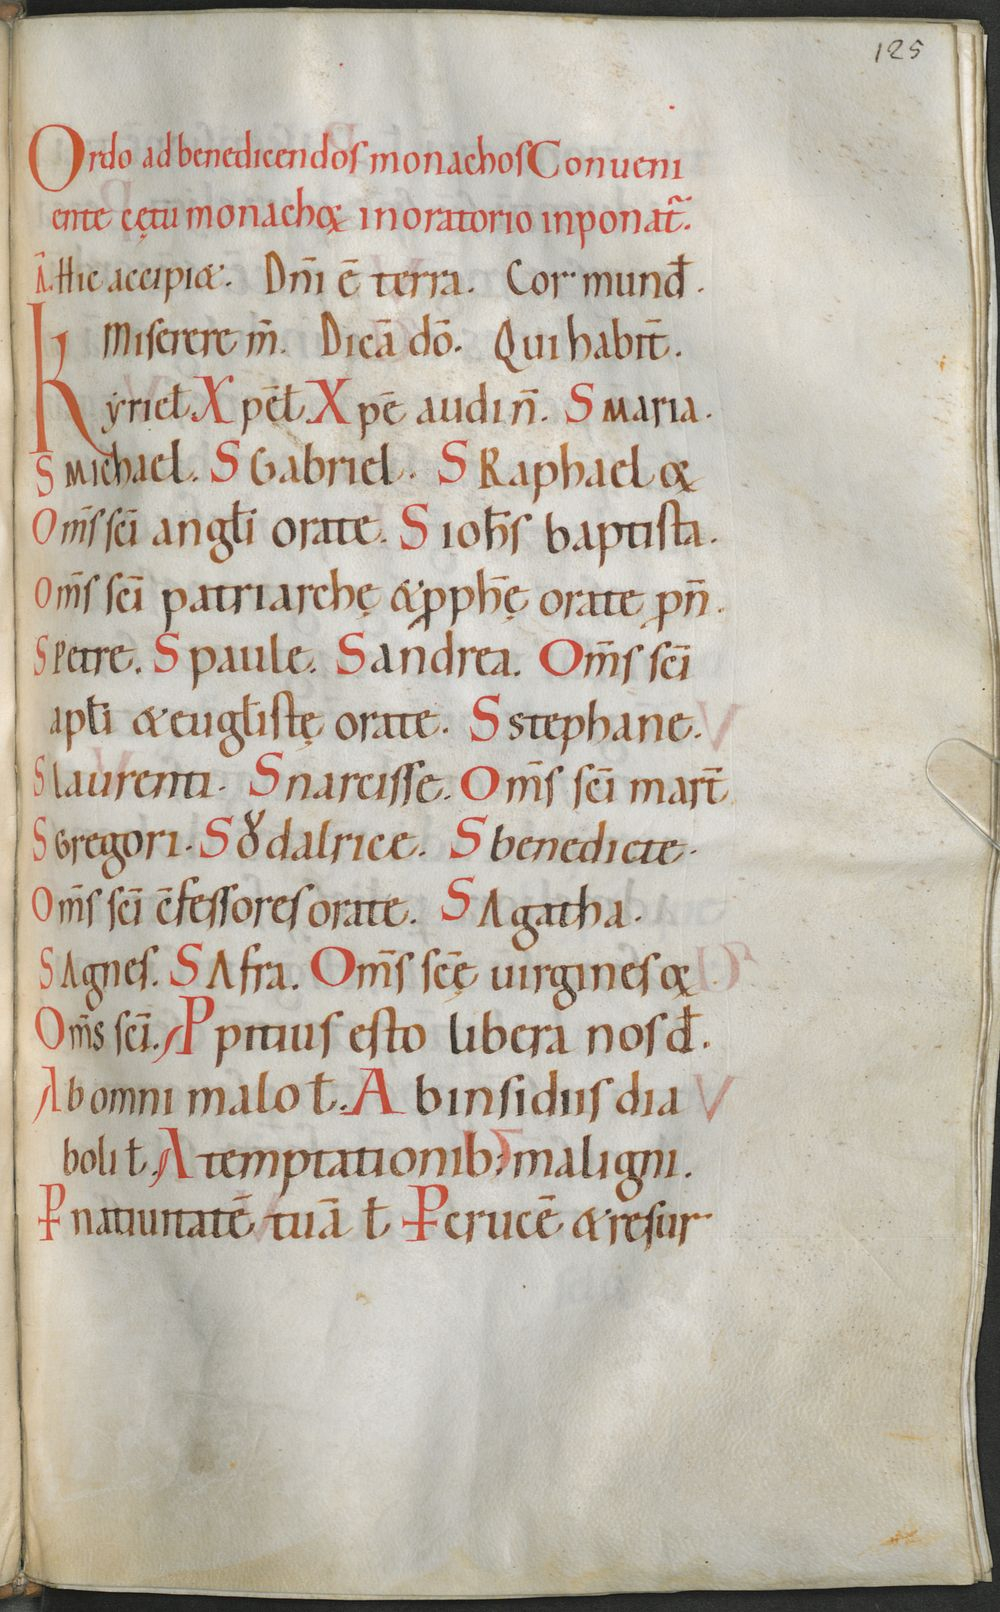 125
Ordo ad benedicendos monachos Conueni
ente cętu monachoꝝ in oratorio inponat̃.
Ā. Hic accipiet. Dn̄i ē terra. Cor mund̄.
Miserere m̄. Dicā dō. Qui habit̄.
Kyrieƚ. Xpēƚ. Xpē audi n̄. S maria.
S michael. S Gabriel. S Raphael &
Om̄s sc̄i angƚi orate. S ioh̄s baptista.
Om̄s sc̄i patriarchę & ꝓph̄ę orate ꝓ n̄.
S Petre. S paule. S andrea. Om̄s sc̄i
apƚi & eugƚistę orate. S stephane.
S laurenti. S narcisse. Om̄s sc̄i mart̄
S Gregori. S Ȣdalrice. S benedicte.
Om̄s sc̄i c̄fessores orate. S Agatha.
S Agnes. S Afra. Om̄s sc̄ę uirgines &
Om̄s sc̄i. Ꝓpitius esto libera nos d̄.
Ab omni malo ƚ. Ab insidiis dia
boli ƚ. A temptationib; maligni.
Ꝑ natiuitatē tuā ƚ Ꝑ crucē & resur